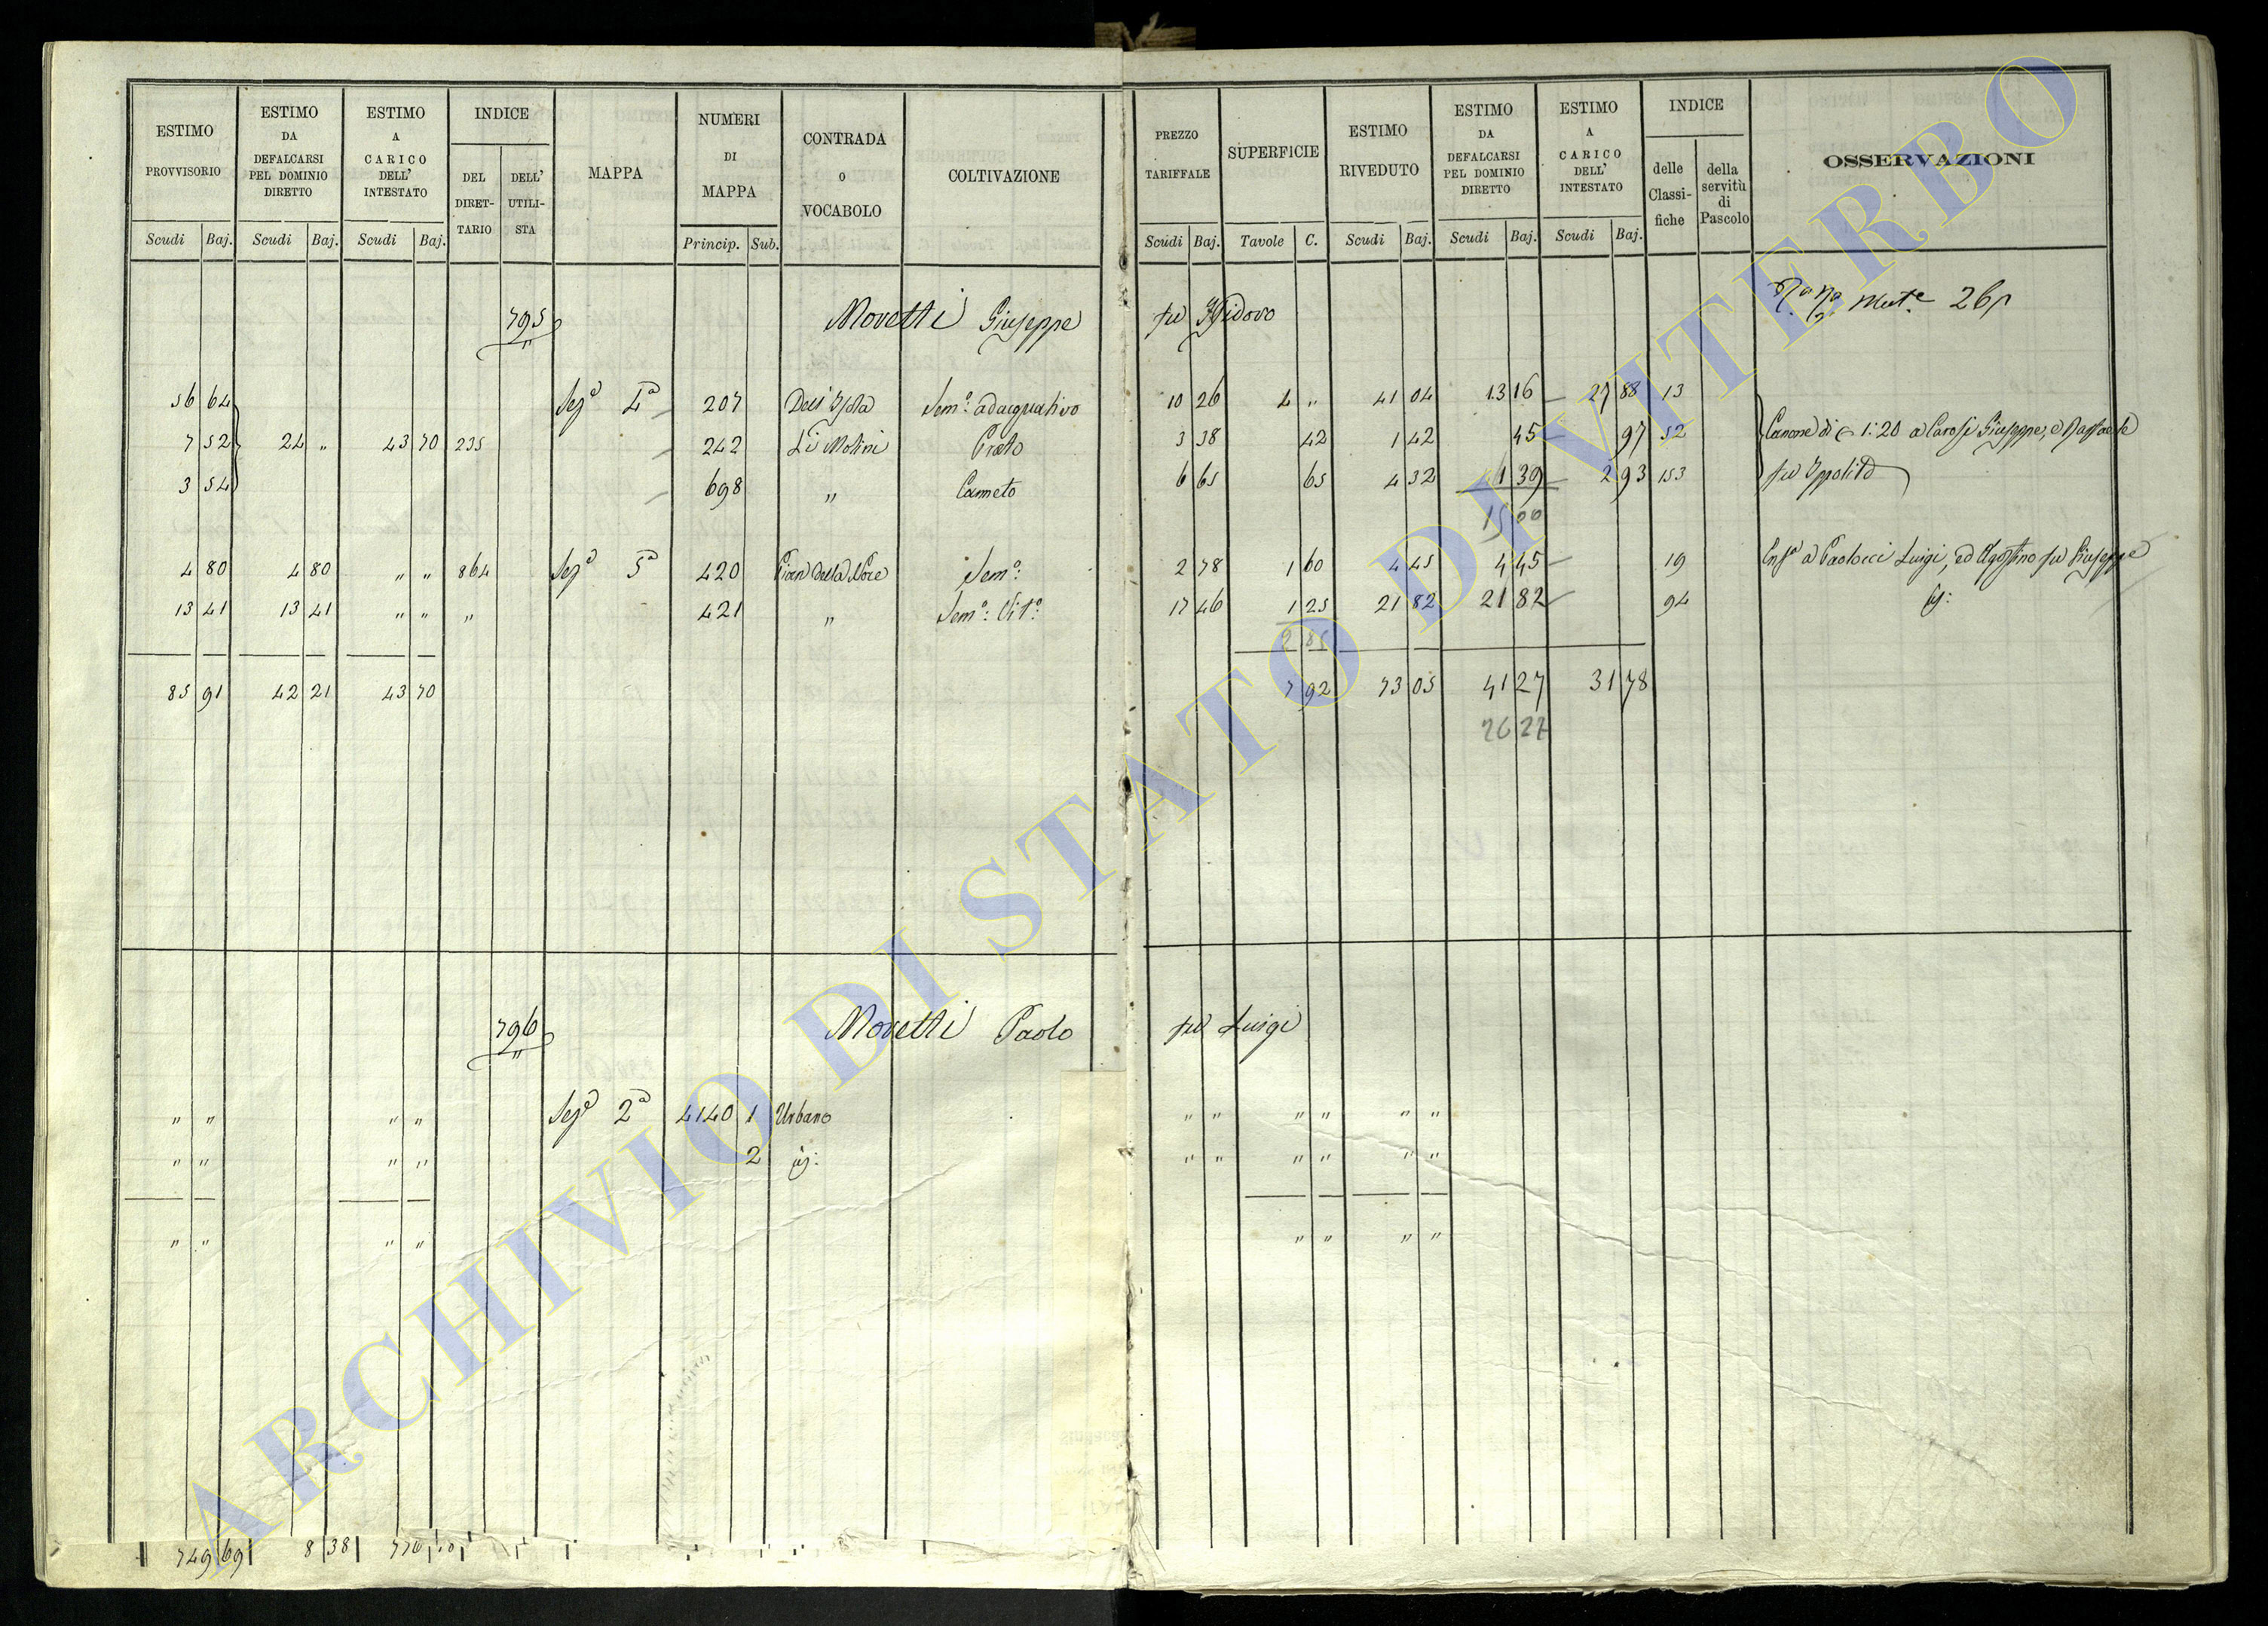 ESTIMO PROVVISORIO | ESTIMO DA DEFALCARSI PEL DOMINIO DIRETTO | ESTIMO A CARICO DELL' INTESTATO | INDICE | MAPPA | NUMERI DI MAPPA | CONTRADA O VOCABOLO | COLTIVAZIONE | PREZZO TARIFFALE | SUPERFICIE | ESTIMO RIVEDUTO | ESTIMO DA DEFALCARSI PEL DOMINIO DIRETTO | ESTIMO A CARICO DELL' INTESTATO | INDICE | OSSERVAZIONI
DEL DIRETTARIO | DELL' UTILISTA | delle Classifiche | della servitù di Pascolo
Scudi | Baj. | Scudi | Baj. | Scudi | Baj. | Princip. | Sub. | Scudi | Baj. | Tavole | C. | Scudi | Baj. | Scudi | Baj. | Scudi | Baj.
795 Moretti Giuseppe fu Isidoro 26
56 64 Sez.e 4a 207 Dell'Isola Sem.o adacquativo 10 26 4 " 41 04 13 16 27 88 13
7 52 24 " 43 70 235 242 Li Molini Prato 3 38 42 1 42 45 97 52 Canone di 1:20 a Carosi Giuseppe, e Raffaele
3 54 698 " Canneto 6 65 65 4 32 1 39 2 93 153 fu Ippolito
15 00
4 80 4 80 " " 864 Sez.e 5a 420 Pian della Noce Sem.o 2 78 1 60 4 45 4 45 19 Enf.a a Paolocci Luigi, ed Agostino fu Giuseppe
13 41 13 41 " " " 421 " Sem.o Vit.o 17 46 1 25 21 82 21 82 94
2 85
85 91 42 21 43 70 7 92 73 05 41 27 31 78
26 27
796 Moretti Paolo fu Luigi
" " " " Sez.e 2a 4140 1 Urbano " " " " " "
" " " " 2 " " " " " "
" " " " " " " "
749 69 8 38
ARCHIVIO DI STATO DI VITERBO